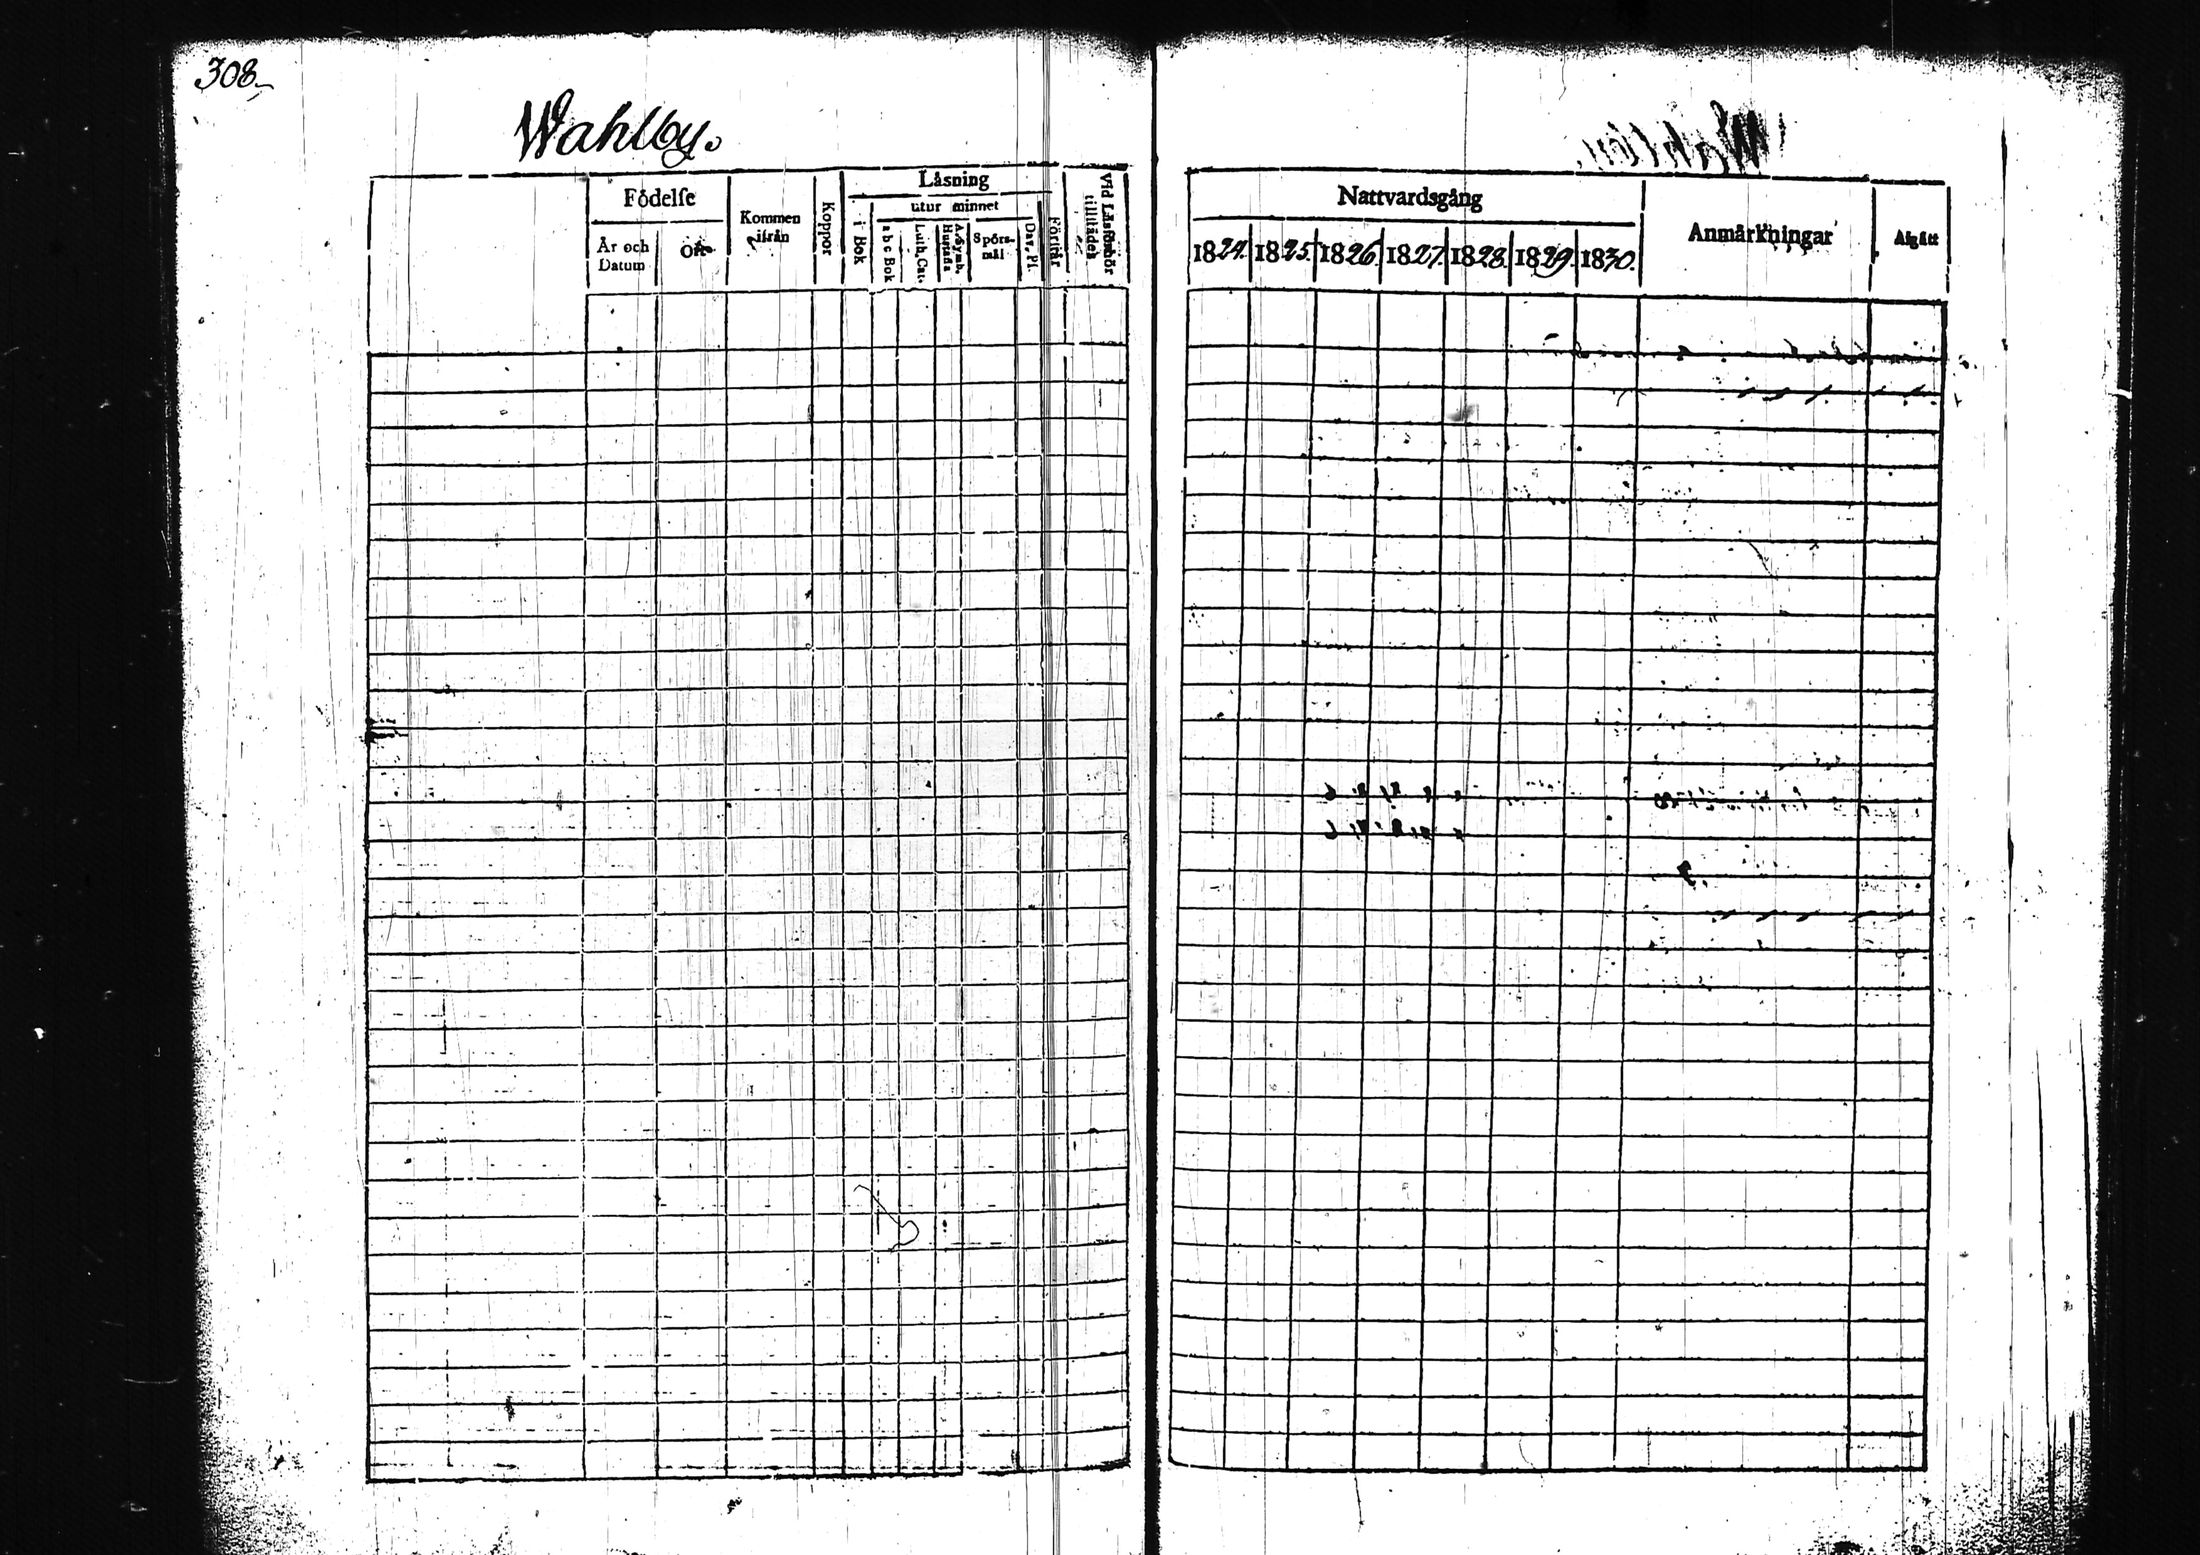 308.
Wahlby.
Födelse
År och Datum
Ort
Kommen ifrån
Koppor
Läsning
i Bok
utur minnet
a b c Bok
Luth. Cat.
A. Symb. Hustafla
Spörsmål
Dav. Ps.
Förstår
Vid Läsförhör tillstädes
Nattvardsgång
1824. 1825. 1826. 1827. 1828. 1829. 1830.
Anmärkningar
Afgått